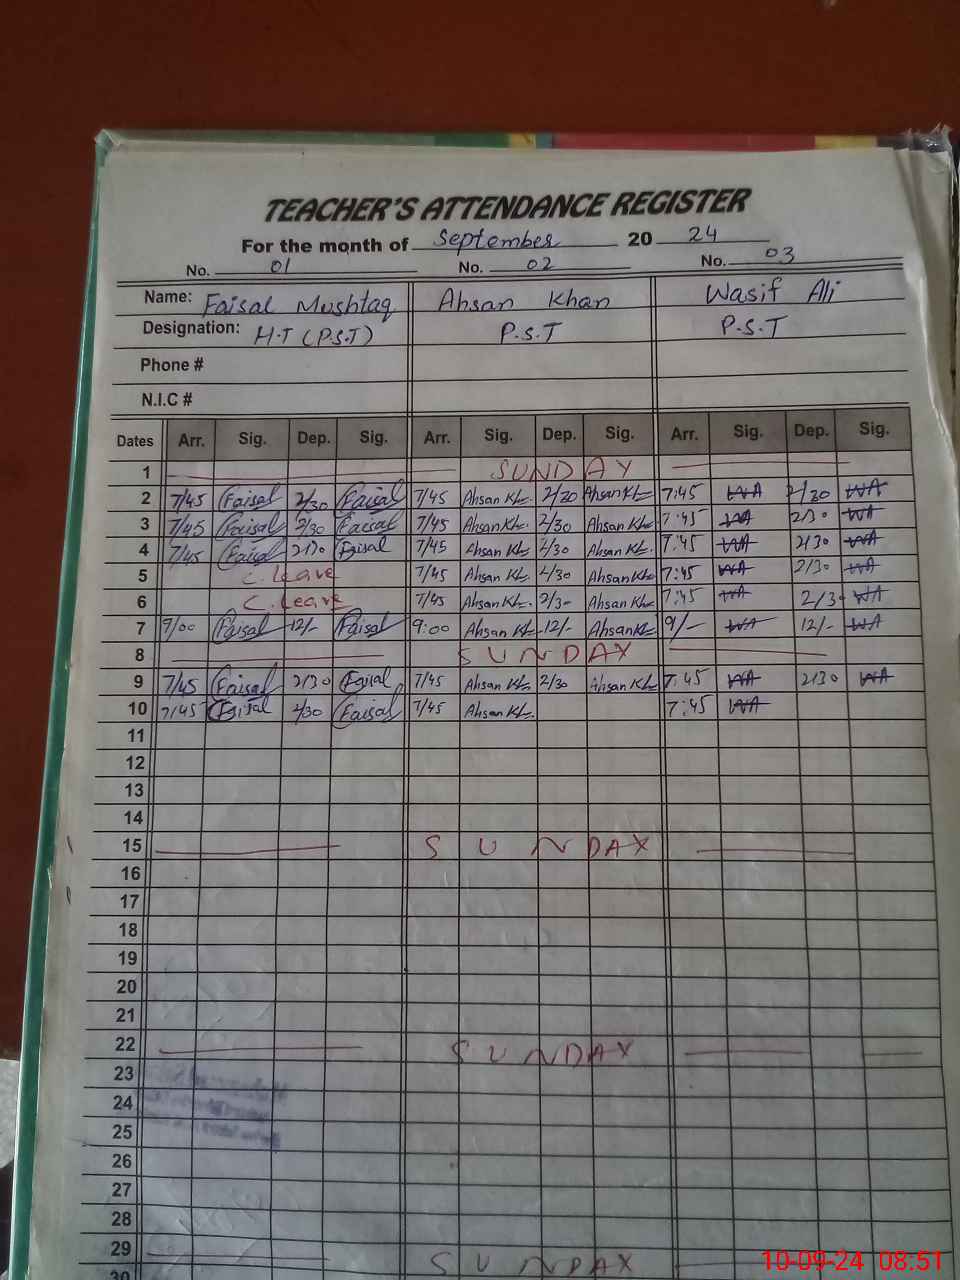 TEACHER'S ATTENDANCE REGISTER
For the month of September 20 24
No. 01 No. 02 No. 03
Name: Faisal Mushtaq Ahsan Khan Wasif Ali
Designation: H.T (P.S.T) P.S.T P.S.T
Phone #
N.I.C #
Dates Arr. Sig. Dep. Sig. Arr. Sig. Dep. Sig. Arr. Sig. Dep. Sig.
1 SUNDAY
2 7/45 Faisal 2/30 Faisal 7/45 Ahsan Kh 2/30 Ahsan Kh 7:45 WA 2/30 WA
3 7/45 Faisal 2/30 Faisal 7/45 Ahsan Kh. 2/30 Ahsan Kh 7:45 WA 2/30 WA
4 7/45 Faisal 2/30 Faisal 7/45 Ahsan Kh. 2/30 Ahsan Kh. 7:45 WA 2/30 WA
5 C. Leave 7/45 Ahsan Kh. 2/30 Ahsan Kh 7:45 WA 2/30 WA
6 C. Leave 7/45 Ahsan Kh. 2/3- Ahsan Kh 7:45 WA 2/30 WA
7 9/00 Faisal 12/- Faisal 9:00 Ahsan Kh 12/- Ahsan Kh 9/- WA 12/- WA
8 SUNDAY
9 7/45 Faisal 2/30 Faisal 7/45 Ahsan Kh. 2/30 Ahsan Kh 7:45 WA 2/30 WA
10 7/45 Faisal 2/30 Faisal 7/45 Ahsan Kh. 7:45 WA
11
12
13
14
15 SUNDAY
16
17
18
19
20
21
22 SUNDAY
23
24
25
26
27
28
29 SUNDAY
30
10-09-24 08:51